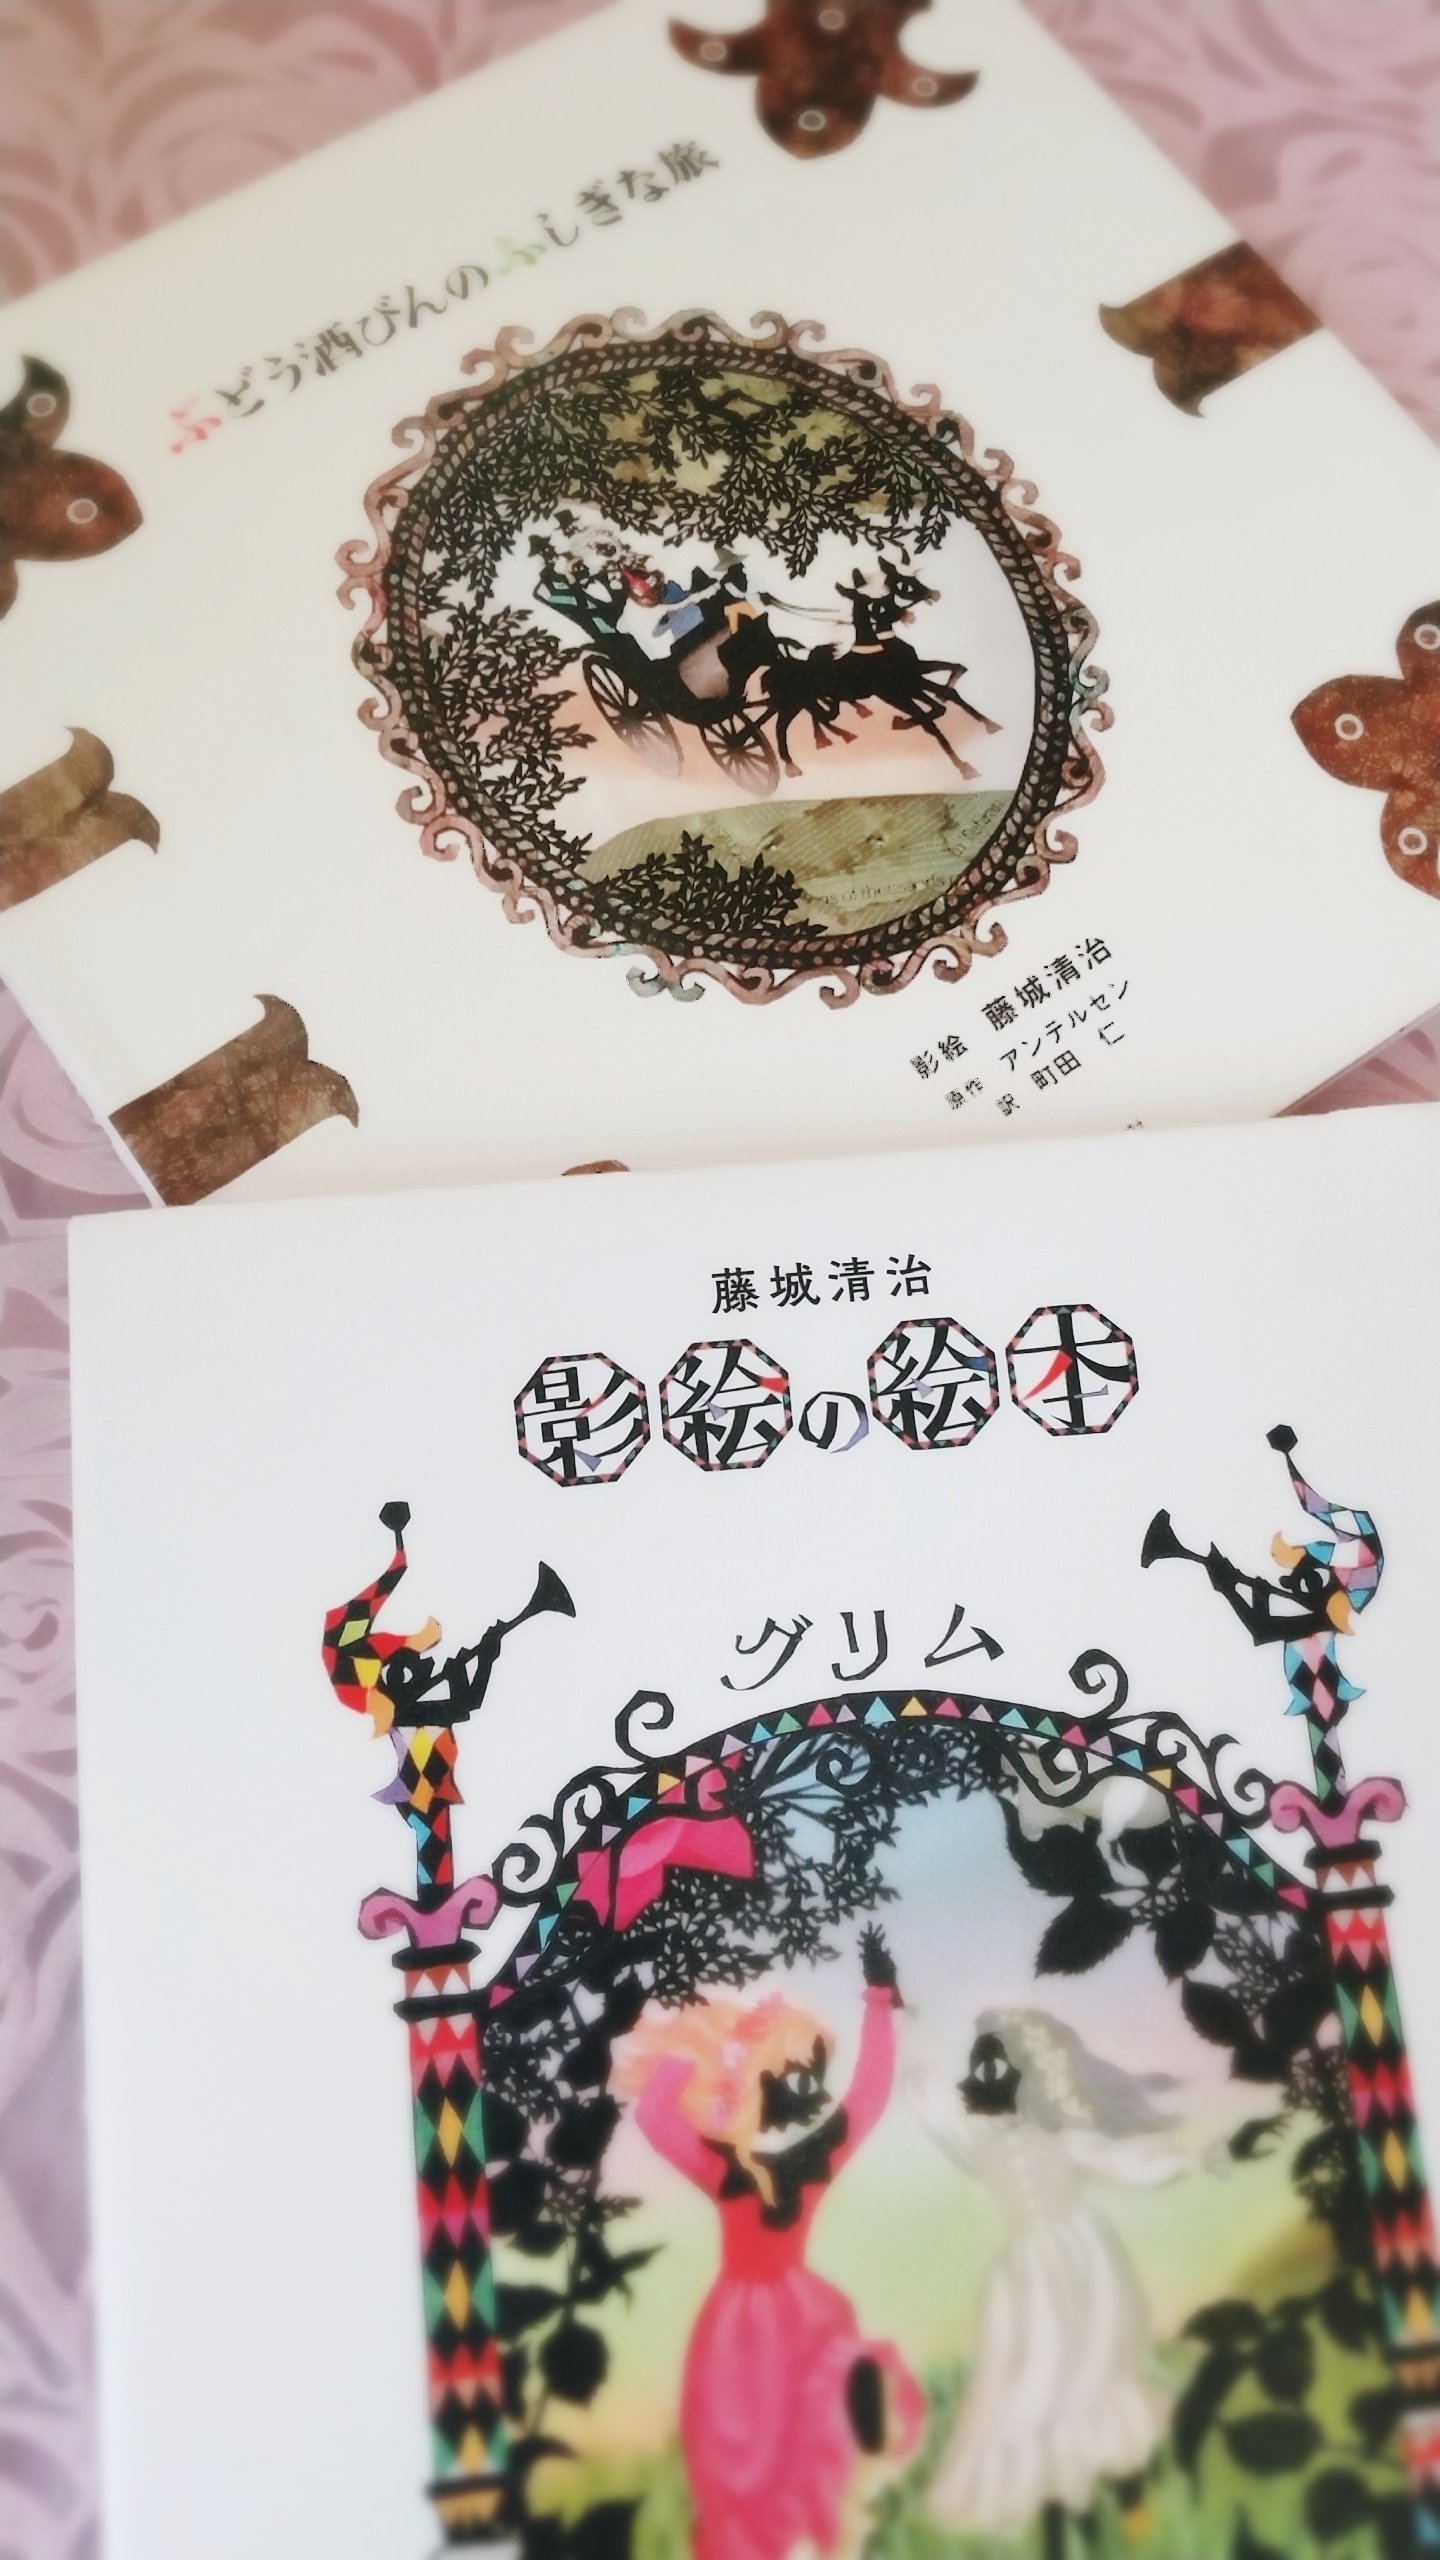 ぶどう酒びんのふしぎな旅
影絵 藤城清治
原作 アンデルセン
訳 町田 仁
藤城清治
影絵の絵本
グリム